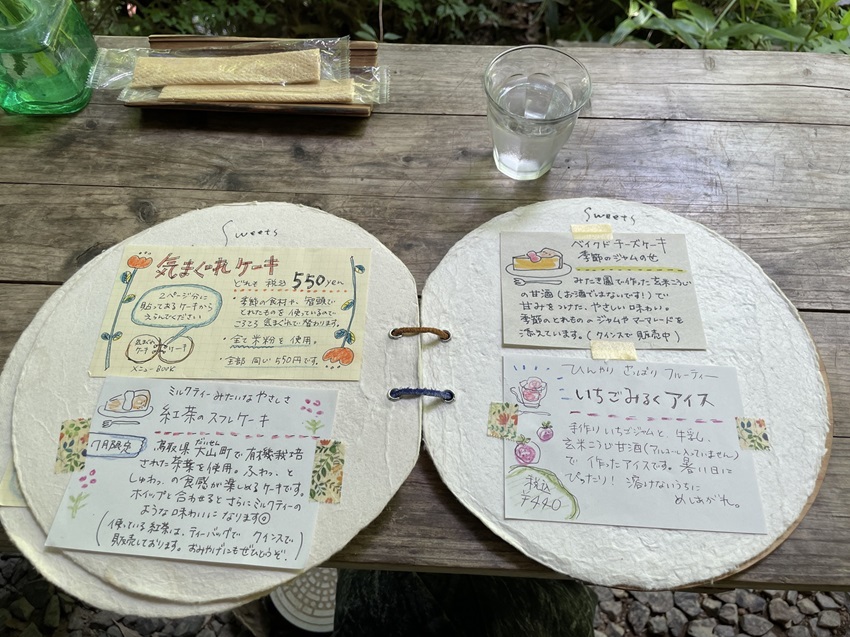 Sweets
気まぐれケーキ
どれも 税込 550yen
2ページ分に
貼ってあるケーキから
えらんでください
・季節の食材や、
とれたものを使っているので
ころころ気まぐれで替わります。
・全て米粉を使用。
・全部同じ550円です。
気まぐれ
ケーキ
ケーキ
メニューBOOK
ミルクティーみたいなやさしさ
紅茶のスフレケーキ
7月限定
鳥取県大山町で有機栽培
だいせん
された茶葉を使用。ふわっ、と
しゅわっ、の食感が楽しめるケーキです。
ホイップと合わせるとさらにミルクティーの
ような味わいになります◎
(使っている紅茶は、ティーバッグで クインスで
販売しております。おみやげにもぜひどうぞ!)
Sweets
ベイクドチーズケーキ
季節のジャムのせ
みたき園で作った玄米こうじ
の甘酒(お酒ではないです!)で
甘みをつけた、やさしい味わい。
季節のとれものジャムやマーマレードを
添えています。(クインスで販売中)
ひんやり さっぱり フルーティー
いちごみるくアイス
手作りいちごジャムと、牛乳、
玄米こうじ甘酒(アルコール入っていません)
で、作ったアイスです。暑い日に
ぴったり! 溶けないうちに
めしあがれ。
税込
¥440